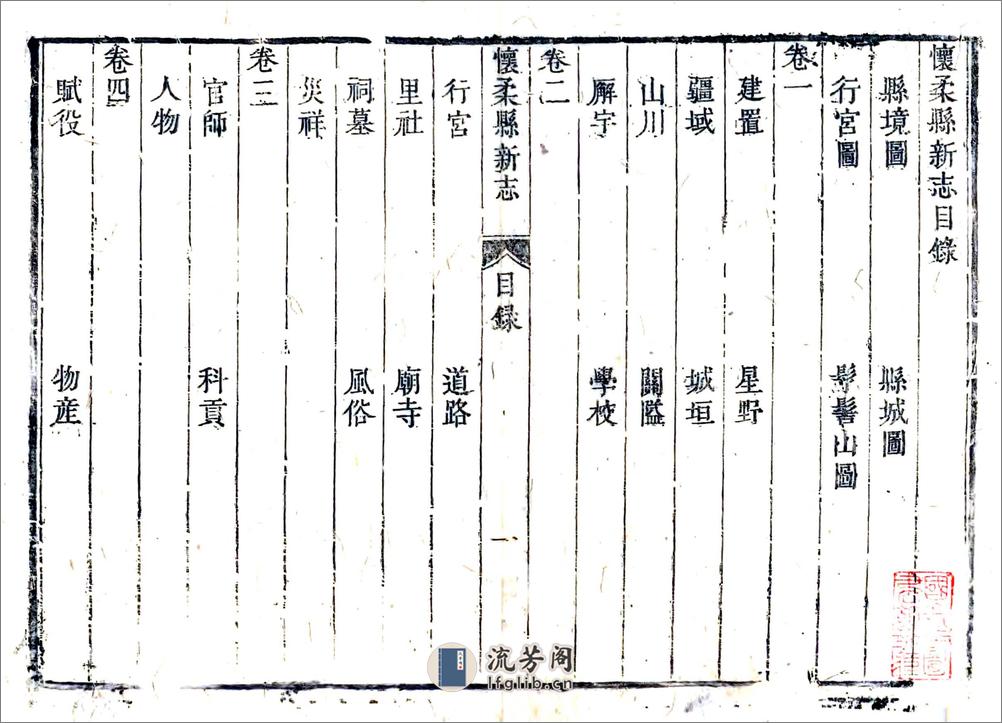 懷柔縣新志目錄
縣境圖 縣城圖
行宮圖 髽髻山圖
卷一
建置 星野
疆域 城垣
山川 關隘
廨宇 學校
卷二
懷柔縣新志 目録 一
行宮 道路
里社 廟寺
祠墓 風俗
災祥
卷三
官師 科貢
人物
卷四
賦役 物産
流芳阁
lfglib.cn